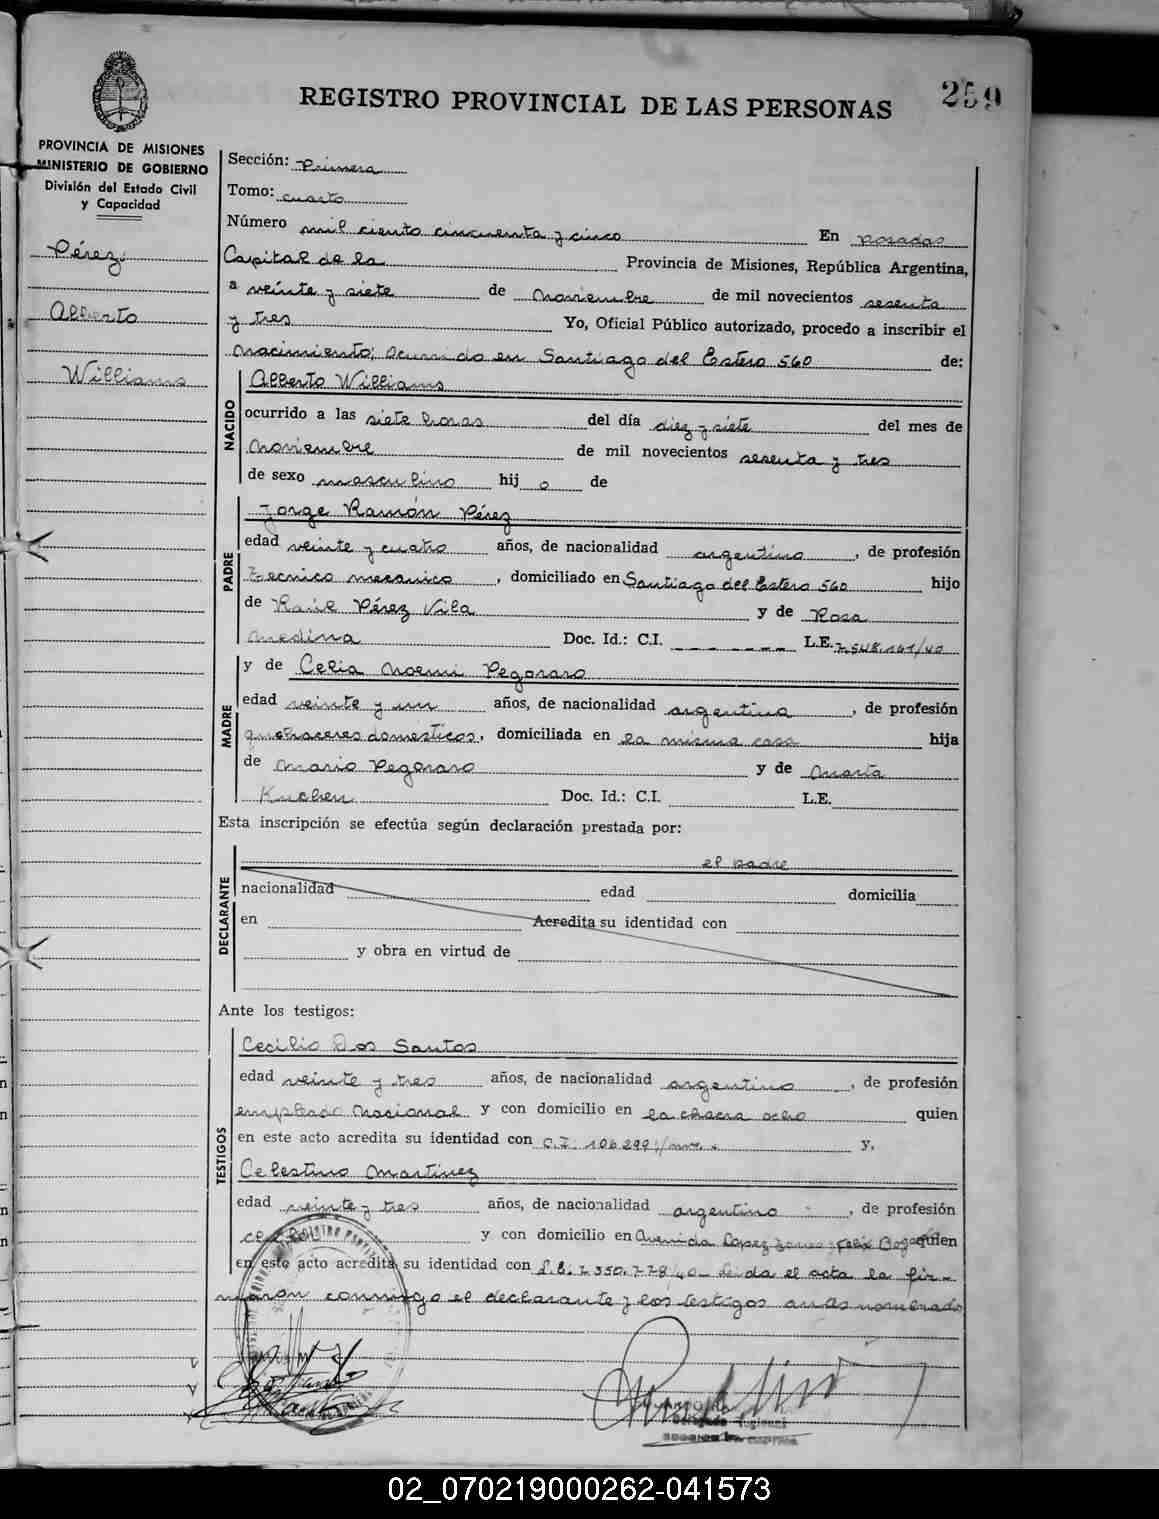 259
REGISTRO PROVINCIAL DE LAS PERSONAS
PROVINCIA DE MISIONES
MINISTERIO DE GOBIERNO
División del Estado Civil
y Capacidad
Pérez
Alberto
Williams
Sección: Primera
Tomo: cuarto
Número mil ciento cincuenta y cinco En Posadas
Capital de la Provincia de Misiones, República Argentina,
a veinte y siete de Noviembre de mil novecientos sesenta
y tres Yo, Oficial Público autorizado, procedo a inscribir el
Nacimiento; ocurrido en Santiago del Estero 560 de:
NACIDO
Alberto Williams
ocurrido a las siete horas del día diez y siete del mes de
Noviembre de mil novecientos sesenta y tres
de sexo masculino hijo de
PADRE
Jorge Ramón Pérez
edad veinte y cuatro años, de nacionalidad argentino, de profesión
tecnico mecanico, domiciliado en Santiago del Estero 560 hijo
de Raúl Pérez Vila y de Rosa
Medina Doc. Id.: C.I. - - - - - - - L.E. 7.548.161/40
MADRE
y de Celia Noemi Pegoraro
edad veinte y un años, de nacionalidad argentina, de profesión
quehaceres domesticos, domiciliada en la misma casa hija
de Mario Pegoraro y de Marta
Kuchen Doc. Id.: C.I. L.E.
Esta inscripción se efectúa según declaración prestada por:
DECLARANTE
el padre
nacionalidad edad domicilia
en Acredita su identidad con
y obra en virtud de
Ante los testigos:
TESTIGOS
Cecilio Dos Santos
edad veinte y tres años, de nacionalidad argentino, de profesión
empleado Nacional y con domicilio en la chacra ocho quien
en este acto acredita su identidad con C.I. 106.299 y,
Celestino Martinez
edad veinte y tres años, de nacionalidad argentino, de profesión
y con domicilio en Avenida Lopez Torres y Felix Bogado quien
en este acto acredita su identidad con L.E. 7.350.778/40 - Leida el acta la fir-
maron conmigo el declarante y los testigos antes nombrados
Delegado Regional
02_070219000262-041573